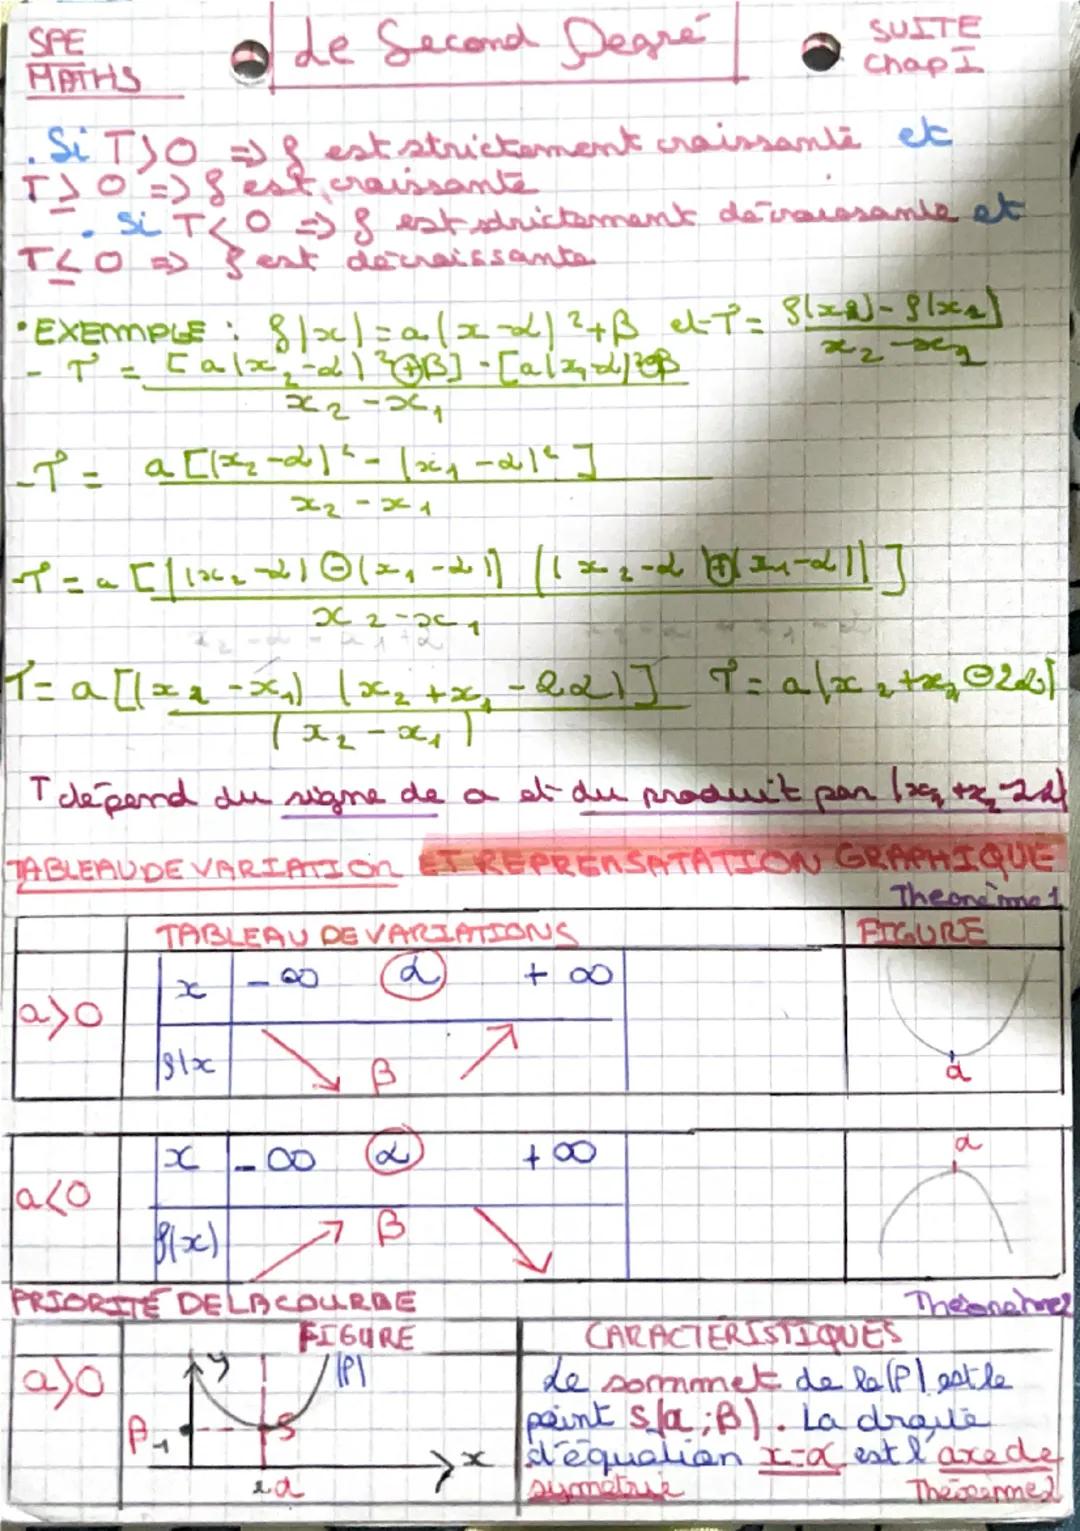 SPE
MATHS
Le Second Degré
SUITE
Chap I
. Si T>0 => f est strictement croissante et
T≥0 => f est croissante
. Si T<0 => f est strictement décroissante et
T≤0 => f est décroissante
• EXEMPLE : f(x) = a(x-α)²+β et T = f(x2)-f(x1) / x2-x1
- T = [a(x2-α)²+β] - [a(x1-α)²+β / x2-x1
- T = a[(x2-α)² - (x1-α)²] / x2-x1
- T = a[((x2-α)-(x1-α)) ((x2-α)+(x1-α))] / x2-x1
T = a[(x2-x1) (x2+x1-2α)] / (x2-x1) T = a(x2+x1-2α)
T dépend du signe de a et du produit par (x1+x2-2α)
TABLEAU DE VARIATION ET REPRENSATATION GRAPHIQUE
Théorème 1
TABLEAU DE VARIATIONS FIGURE
a>0
x -∞ α +∞
f(x β
α
a<0
x -∞ α +∞
f(x) β
α
PRIORITÉ DE LA COURBE
Théorème 2
FIGURE CARACTÉRISTIQUES
a>0
y (P)
β S
x
α
Le sommet de la (P) est le
point S(α;β). La droite
d'équation x=α est l'axe de
symétrie Théorème 2